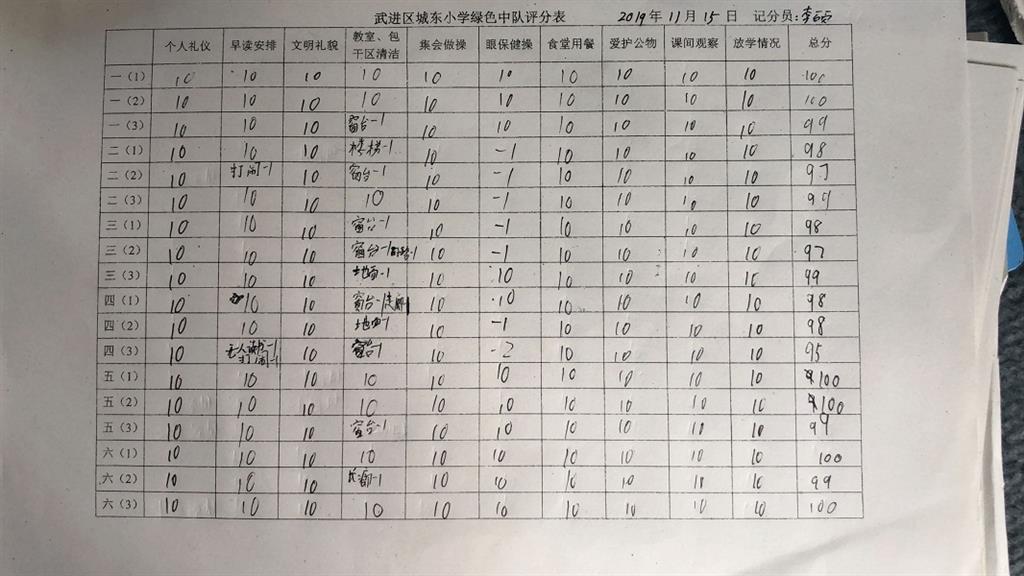 武进区城东小学绿色中队评分表 2019年11月15日 记分员:李
个人礼仪 早读安排 文明礼貌 教室、包干区清洁 集会做操 眼保健操 食堂用餐 爱护公物 课间观察 放学情况 总分
一(1) 10 10 10 10 10 10 10 10 10 10 100
一(2) 10 10 10 10 10 10 10 10 10 10 100
一(3) 10 10 10 窗台-1 10 10 10 10 10 10 99
二(1) 10 10 10 楼梯-1 10 -1 10 10 10 10 98
二(2) 10 打闹-1 10 窗台-1 10 -1 10 10 10 10 97
二(3) 10 10 10 10 10 -1 10 10 10 10 99
三(1) 10 10 10 窗台-1 10 -1 10 10 10 10 98
三(2) 10 10 10 窗台-1 -1 10 -1 10 10 10 10 97
三(3) 10 10 10 地面-1 10 10 10 10 10 10 99
四(1) 10 10 10 窗台-1 10 10 10 10 10 10 98
四(2) 10 10 10 地面-1 10 -1 10 10 10 10 98
四(3) 10 无人读书-1 打闹-1 10 窗台-1 10 -2 10 10 10 10 95
五(1) 10 10 10 10 10 10 10 10 10 10 100
五(2) 10 10 10 10 10 10 10 10 10 10 100
五(3) 10 10 10 窗台-1 10 10 10 10 10 10 99
六(1) 10 10 10 10 10 10 10 10 10 10 100
六(2) 10 10 10 -1 10 10 10 10 10 10 99
六(3) 10 10 10 10 10 10 10 10 10 10 100